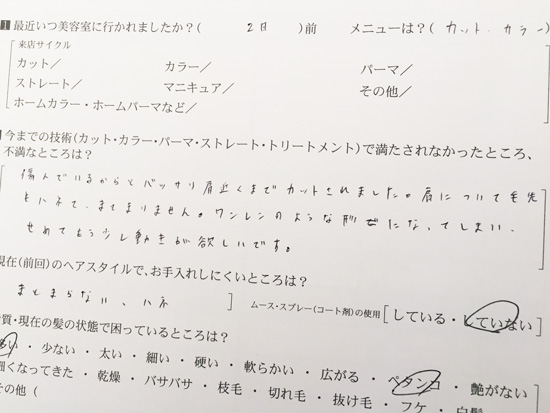 1 最近いつ美容室に行かれましたか?( 2日 )前 メニューは?( カット、カラー )
来店サイクル
カット/ カラー/ パーマ/
ストレート/ マニキュア/ その他/
ホームカラー・ホームパーマなど/
今までの技術(カット・カラー・パーマ・ストレート・トリートメント)で満たされなかったところ、
不満なところは?
傷んでいるからとバッサリ肩近くまでカットされました。肩について毛先
もハネて、まとまりません。ワンレンのような形になってしまい、
せめてもう少し動きが欲しいです。
現在(前回)のヘアスタイルで、お手入れしにくいところは?
まとまらない、ハネ ムース・スプレー(コート剤)の使用 [ している・していない ]
質・現在の髪の状態で困っているところは?
い・少ない・太い・細い・硬い・軟らかい・広がる・ペタンコ・艶がない
細くなってきた・乾燥・バサバサ・枝毛・切れ毛・抜け毛・フケ・白髪
その他 (